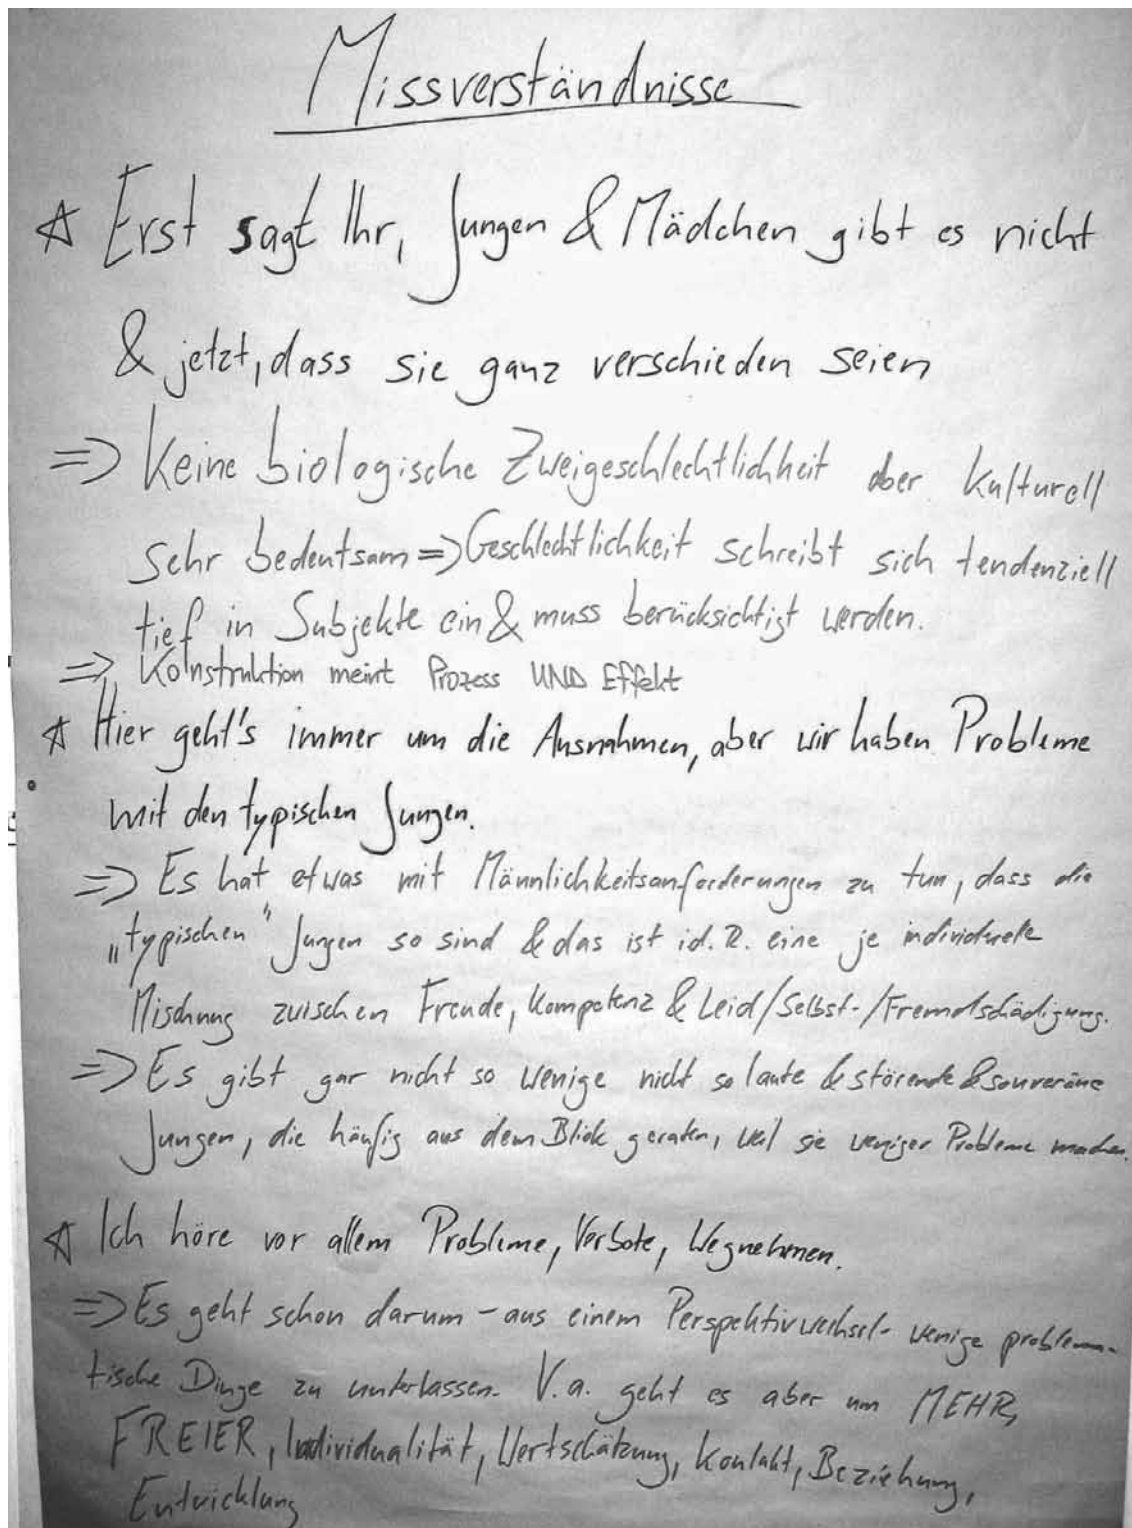 Missverständnisse
☆ Erst sagt Ihr, Jungen & Mädchen gibt es nicht
& jetzt, dass sie ganz verschieden seien
=> Keine biologische Zweigeschlechtlichkeit aber kulturell
sehr bedeutsam => Geschlechtlichkeit schreibt sich tendenziell
tief in Subjekte ein & muss berücksichtigt werden.
=> Konstruktion meint Prozess UND Effekt
☆ Hier geht's immer um die Ausnahmen, aber wir haben Probleme
mit den typischen Jungen.
=> Es hat etwas mit Männlichkeitsanforderungen zu tun, dass die
„typischen" Jungen so sind & das ist i.d.R. eine je individuelle
Mischung zwischen Freude, Kompetenz & Leid/Selbst-/Fremdschädigung.
=> Es gibt gar nicht so wenige nicht so laute & störende & souveräne
Jungen, die häufig aus dem Blick geraten, weil sie weniger Probleme machen.
☆ Ich höre vor allem Probleme, Verbote, Wegnehmen.
=> Es geht schon darum – aus einem Perspektivwechsel - wenige problema-
tische Dinge zu unterlassen. V.a. geht es aber um MEHR,
FREIER, Individualität, Wertschätzung, Kontakt, Beziehung,
Entwicklung